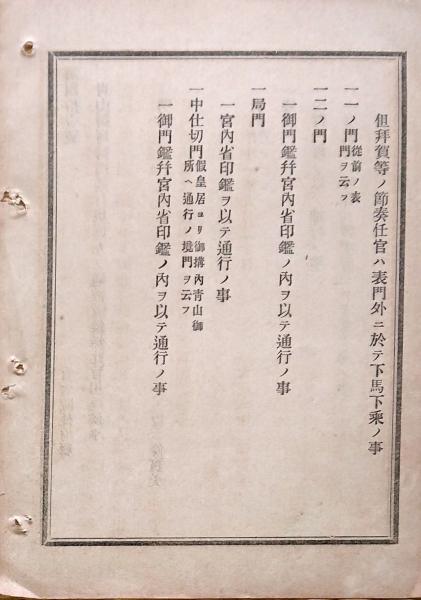 但拜賀等ノ節奏任官ハ表門外ニ於テ下馬下乘ノ事
一一ノ門從前ノ表門ヲ云フ
一二ノ門
一御門鑑幷宮內省印鑑ノ內ヲ以テ通行ノ事
一局門
一宮內省印鑑ヲ以テ通行ノ事
一中仕切門假皇居ヨリ御搆內靑山御所ヘ通行ノ境門ヲ云フ
一御門鑑幷宮內省印鑑ノ內ヲ以テ通行ノ事